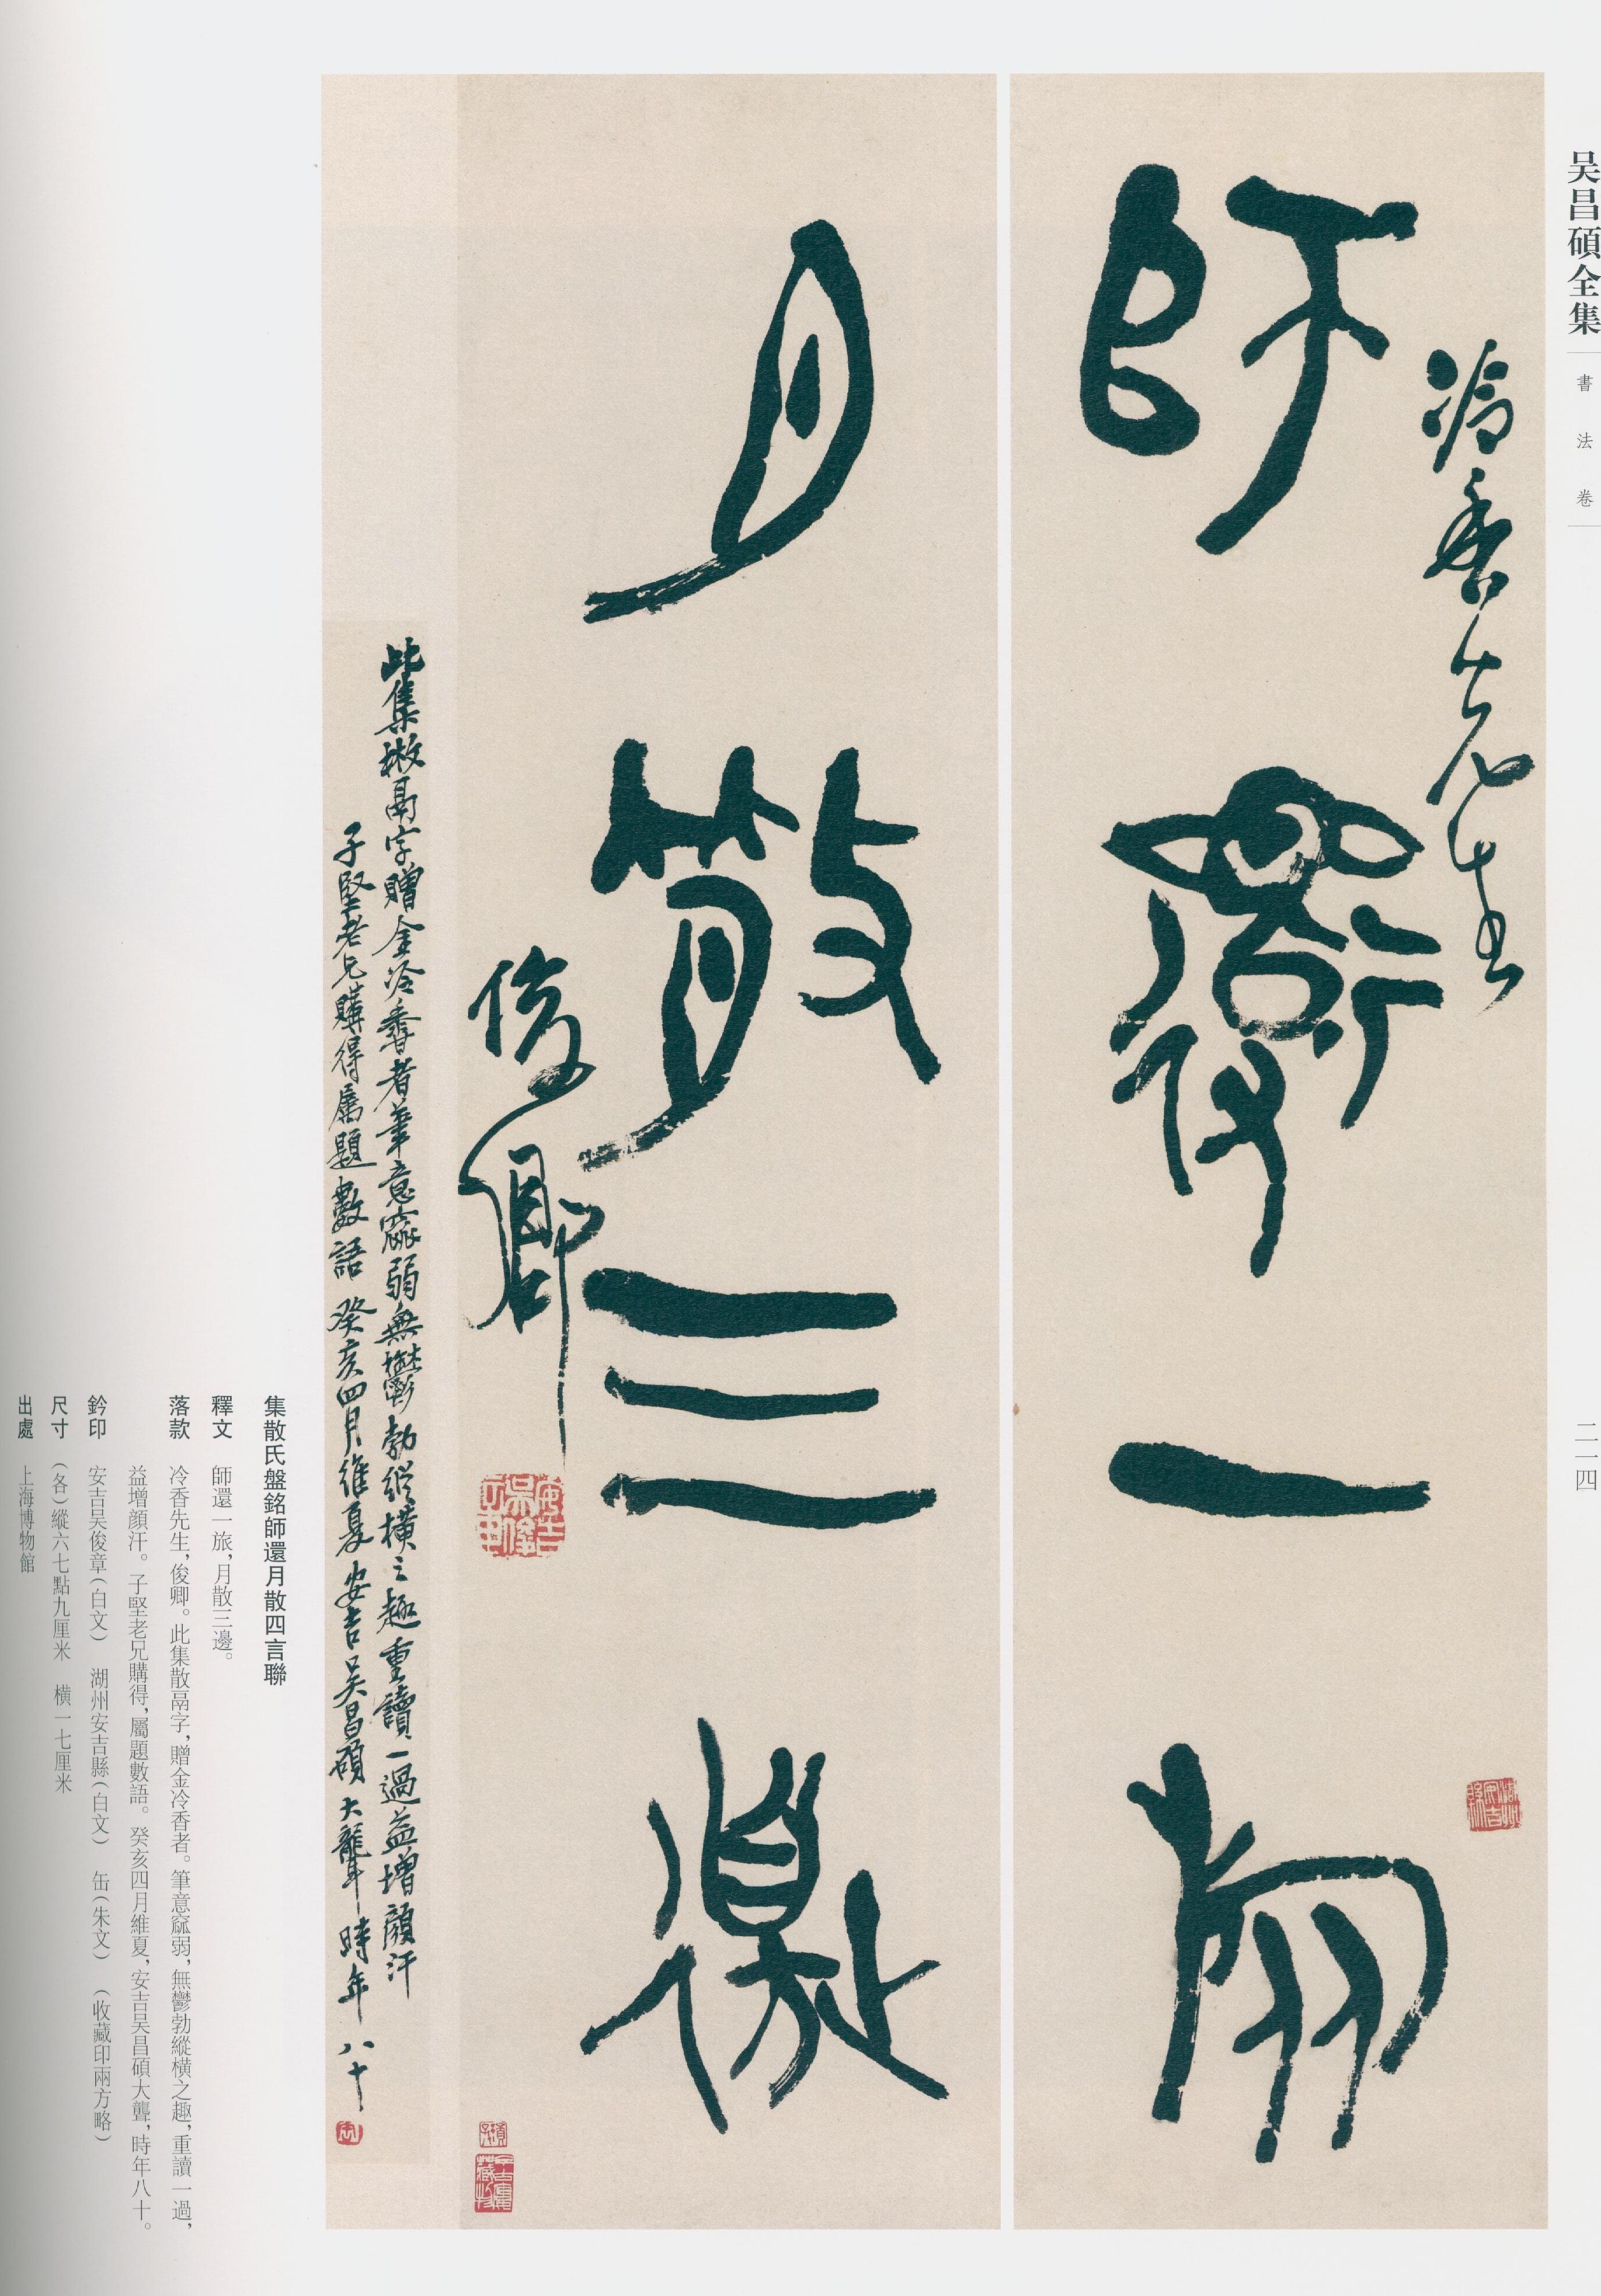 吴昌碩全集
書法卷
二一四
師還一旅
冷香先生
月散三邊
俊卿
此集散鬲字贈金冷香者筆意窳弱無鬱勃縱橫之趣重讀一過益增顏汗
子堅老兄購得屬題數語癸亥四月維夏安吉吴昌碩大聾時年八十
安吉吴俊章
湖州安吉縣
缶
集散氏盤銘師還月散四言聯
釋文 師還一旅，月散三邊。
落款 冷香先生，俊卿。此集散鬲字，贈金冷香者。筆意窳弱，無鬱勃縱橫之趣，重讀一過，
益增顔汗。子堅老兄購得，屬題數語。癸亥四月維夏，安吉吴昌碩大聾，時年八十。
鈐印 安吉吴俊章（白文） 湖州安吉縣（白文） 缶（朱文）（收藏印兩方略）
尺寸（各）縱六七點九厘米 橫一七厘米
出處 上海博物館